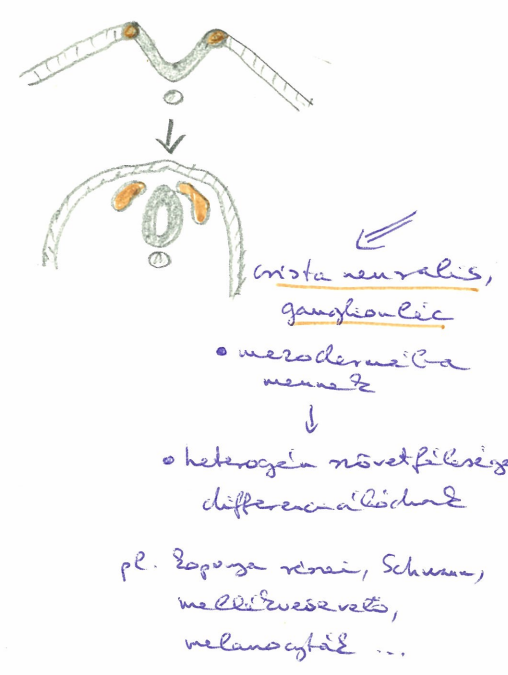 crista neuralis,
ganglionléc
• mezodermába
mennek
• heterogén szövetféleségek
differenciálódnak
pl. koponya részei, Schwann,
mellékvesevelő,
melanocyták ...